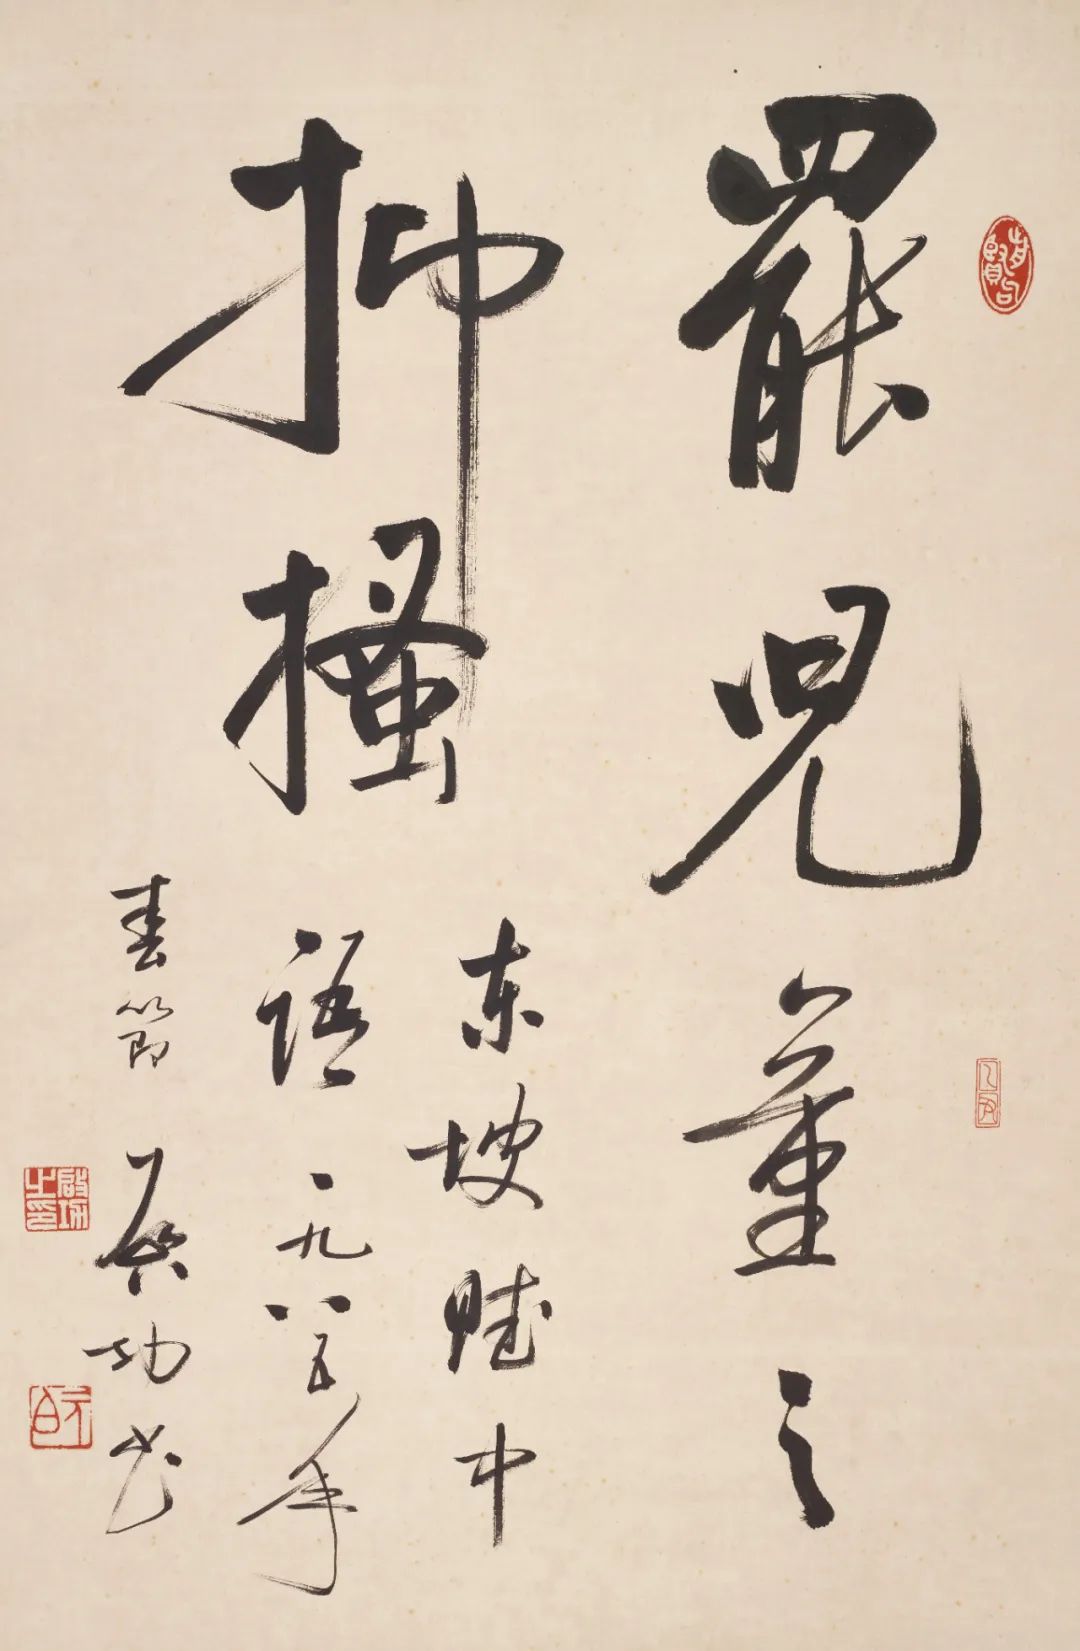 罷兒童之
抑搔
东坡賦中
語一九八五年
春節 启功书
啟功之印
元白